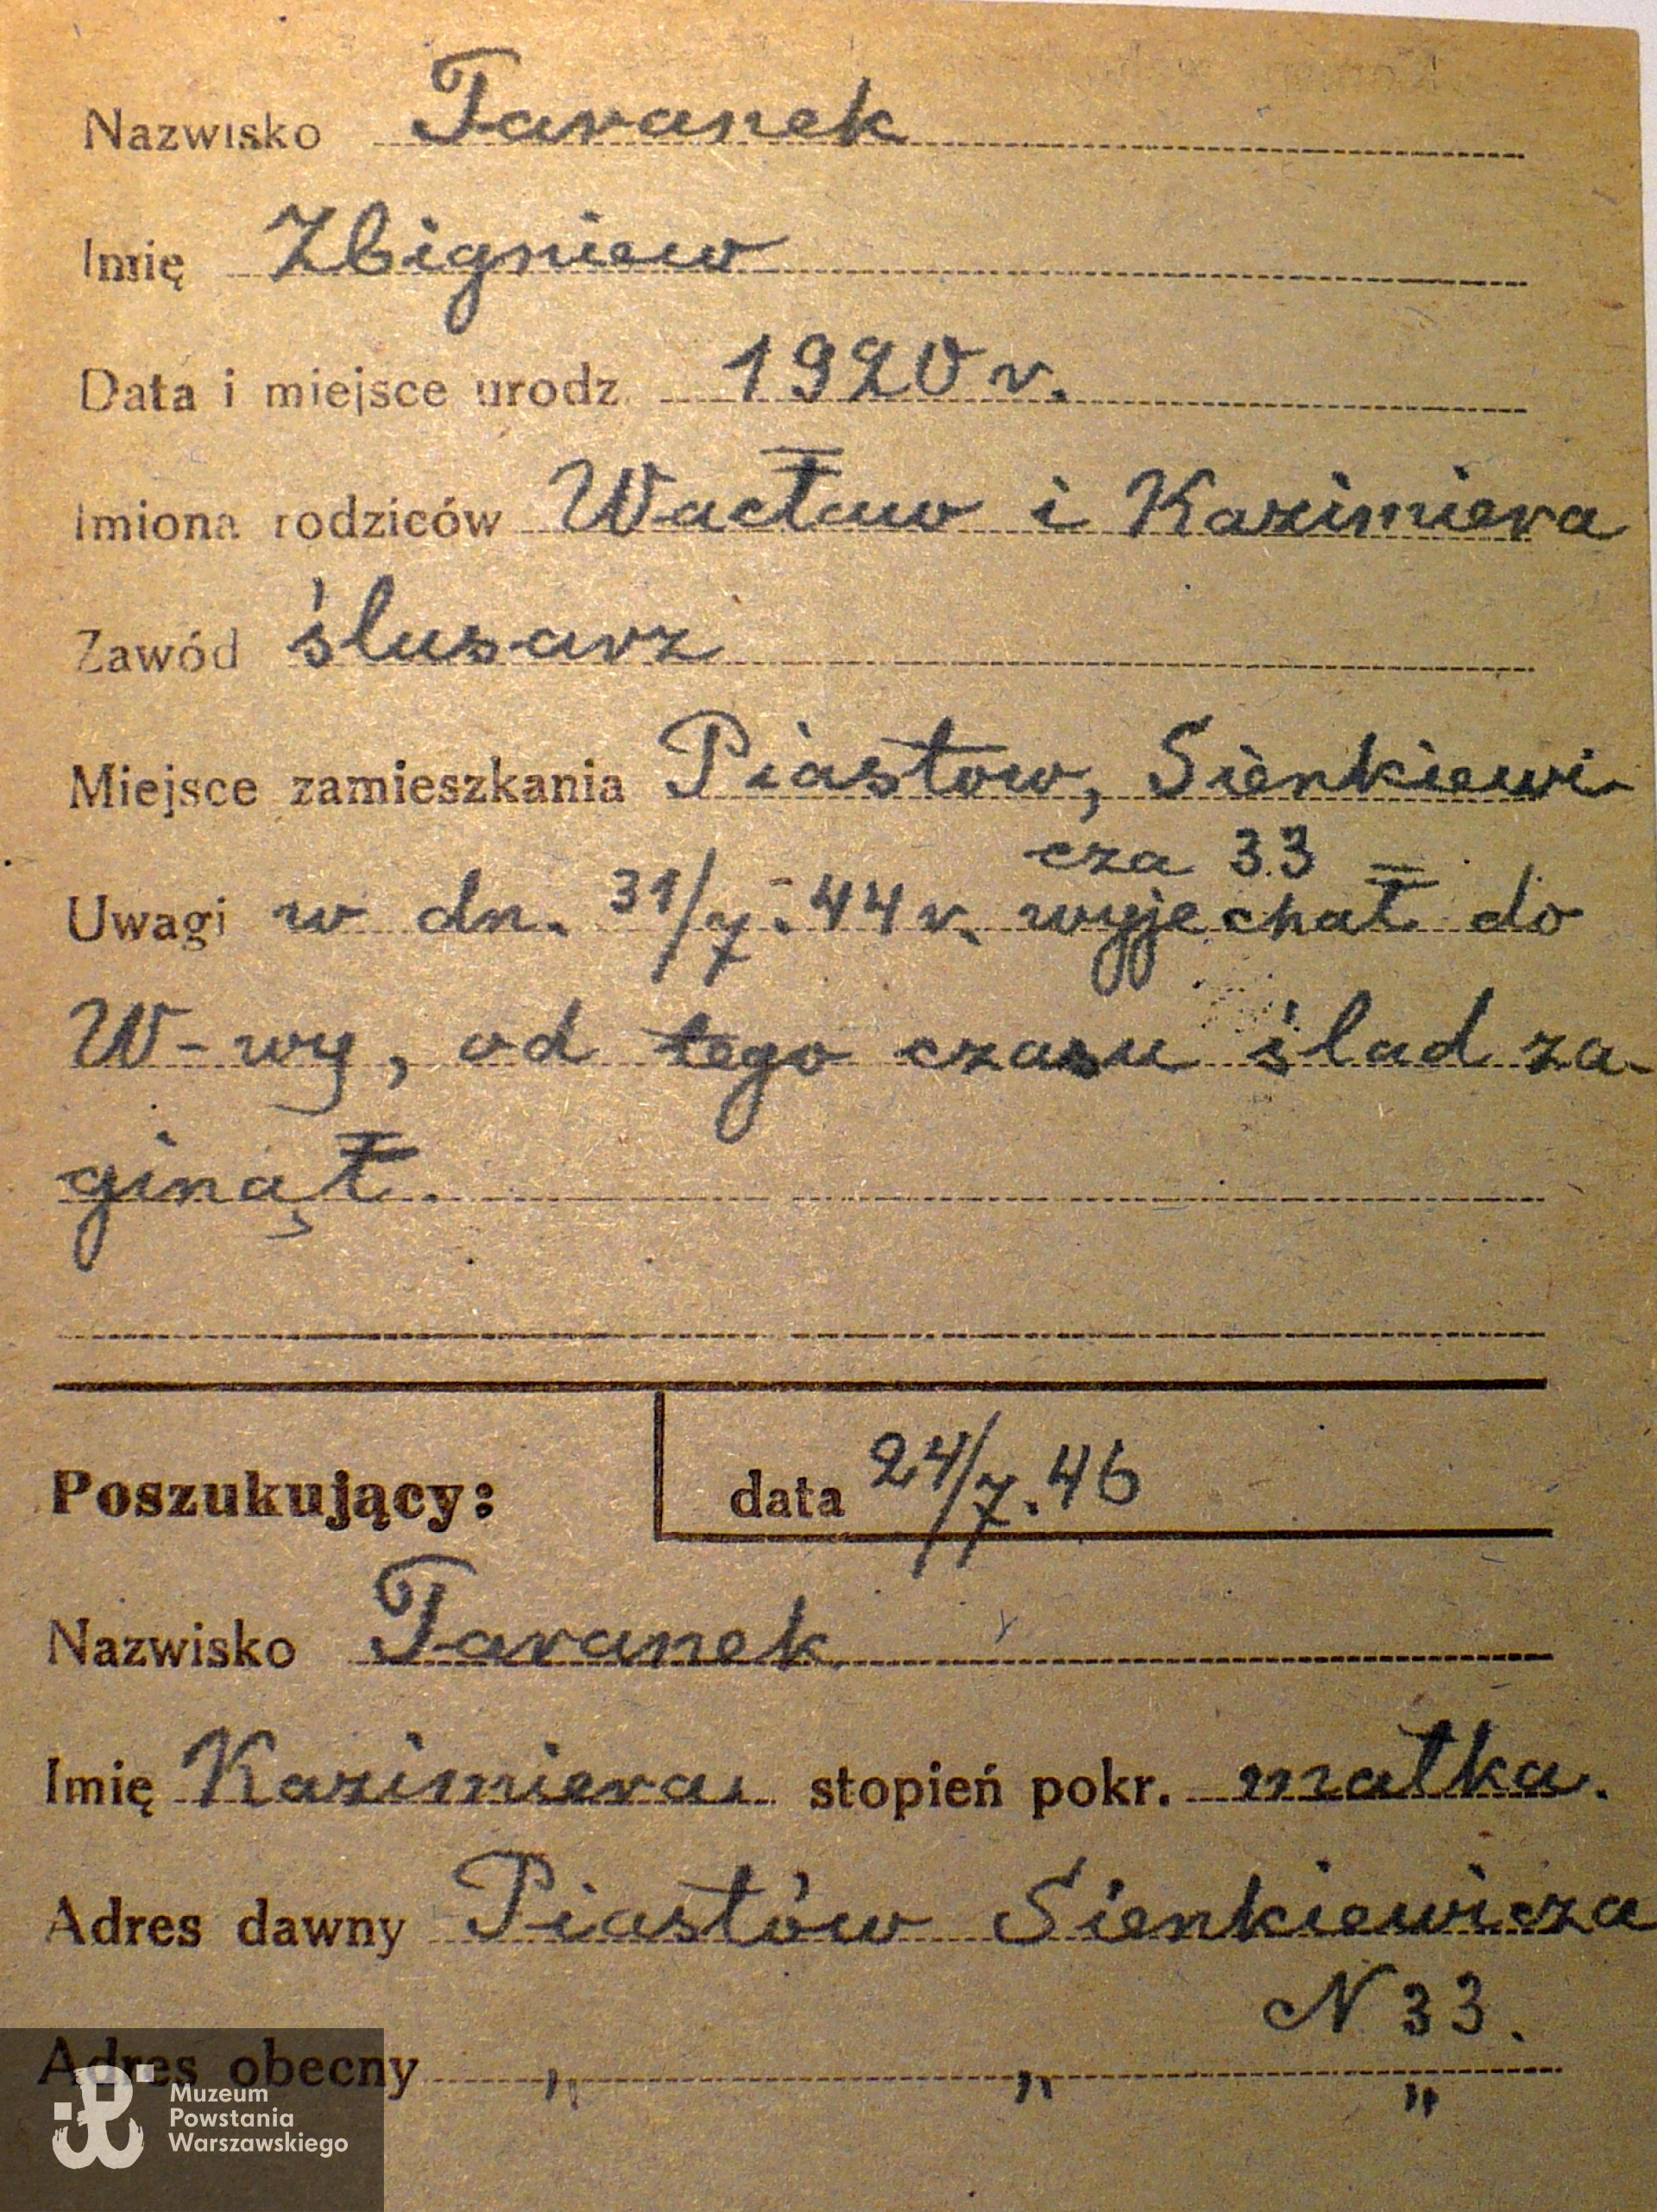 Nazwisko Taranek
Imię Zbigniew
Data i miejsce urodz. 1920 r.
Imiona rodziców Wacław i Kazimiera
Zawód ślusarz
Miejsce zamieszkania Piastow, Sienkiewi-
cza 33
Uwagi w dn. 31/7.44 r. wyjechał do
W-wy, od tego czasu ślad za-
ginął.
Poszukujący: data 24/7.46
Nazwisko Taranek
Imię Kazimiera stopień pokr. matka.
Adres dawny Piastów Sienkiewicza
N 33.
Adres obecny „ „ „
Muzeum
Powstania
Warszawskiego